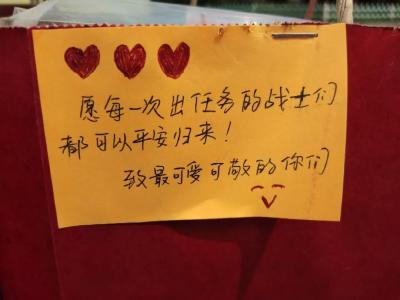 愿每一次出任务的战士们
都可以平安归来！
致最可爱可敬的你们